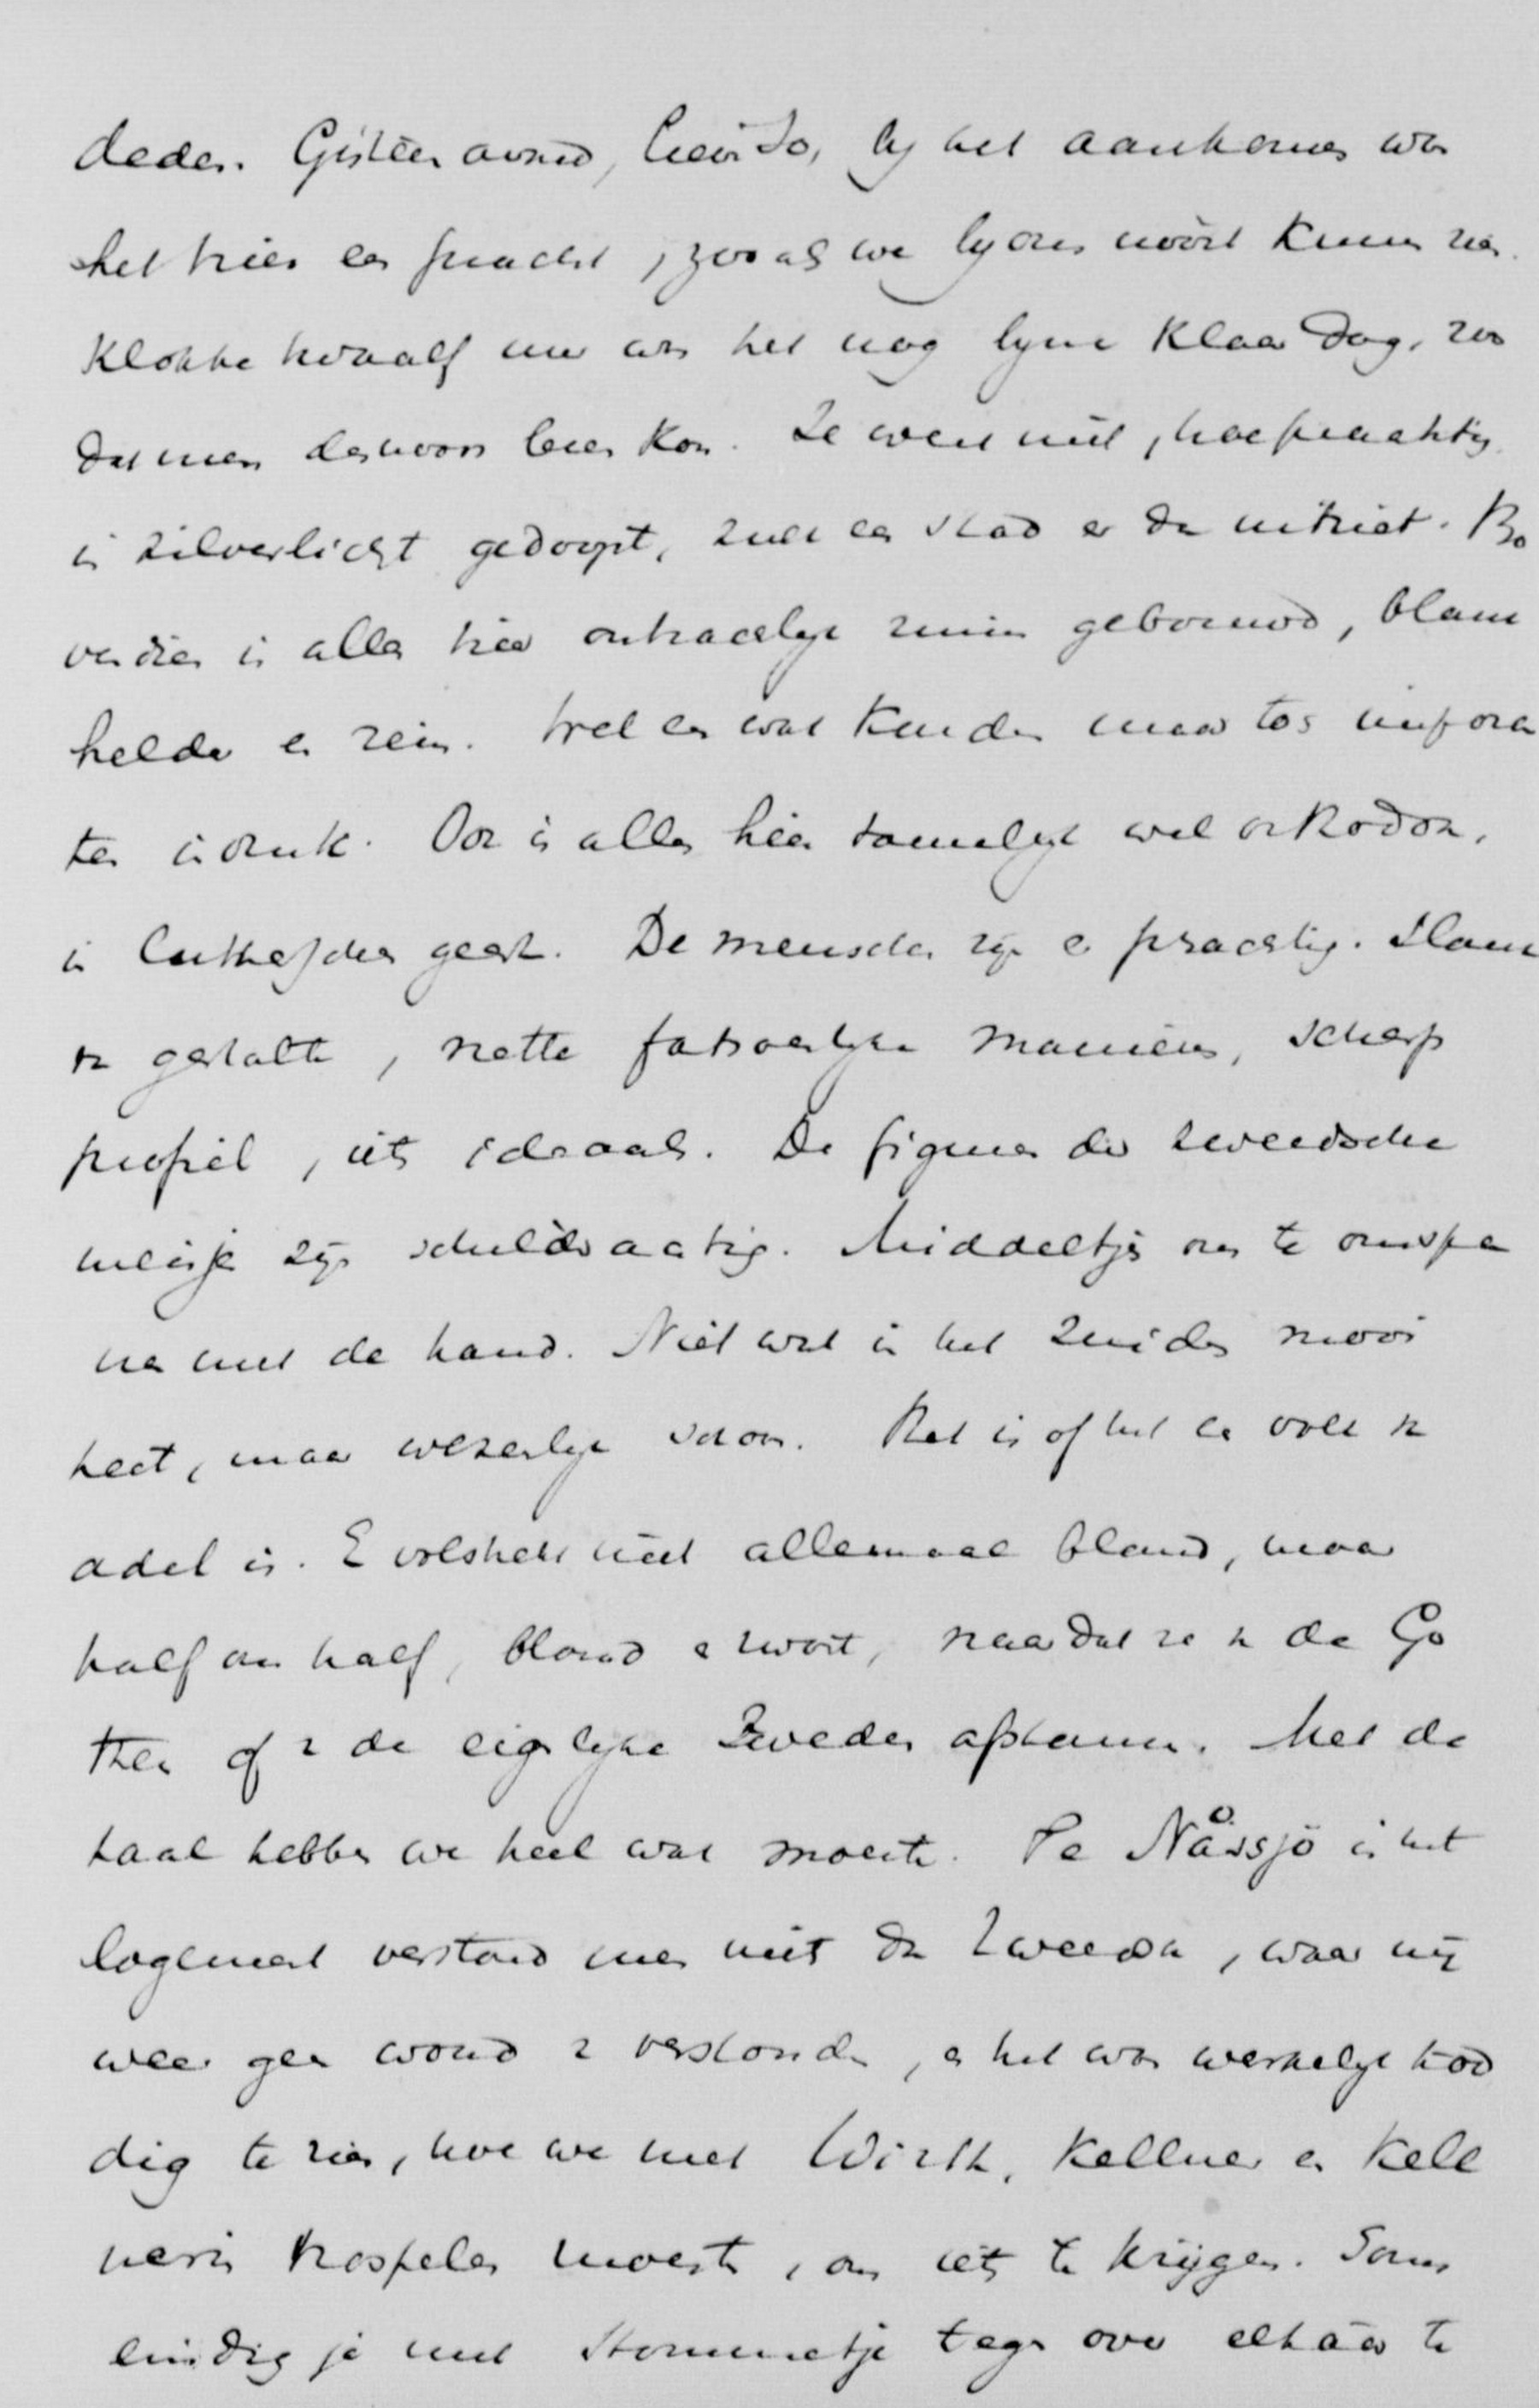 deden. Gisteren avond, lieve Jo, bij het aankomen was
het hier een pracht, zooals we bij ons nooit kunnen zien.
Klokke twaalf uur was het nog bijna klaar dag, zoo
dat men desnoods lezen kon. Je weet niet, hoe prachtig
in zilverlicht gedoopt, zulk een stad er dan uitziet. Bo
vendien is alles hier ontzaggelijk ruim gebouwd, blank
helder en rein. Wel een wat kouden maar toch imponeeren
ten indruk. Ook is alles hier tamelijk wel orthodox,
in Lutherschen geest. De menschen zijn er prachtig. Slank
van gestalte, nette fatsoenlijke manieren, scherp
profiel, iets ideaals. De figuren der zweedsche
meisjes zijn schilderachtig. Middeltjes om te omspan
nen met de hand. Niet wat in het zuiden mooi
heet, maar wezenlijk schoon. Het is of het een volk van
adel is. En volstrekt niet allemaal blond, maar
half om half, blond en zwart, naardat ze van de Go
then of van de eigenlijke Zweden afstammen. Met de
taal hebben we heel wat moeite. Te Nåssjö in het
logement verstond men niet dan Zweedsch, waar wij
weer geen woord van verstonden, en het was werkelijk kod
dig te zien, hoe we met Wirth, Kellner en Kell
nerin haspelen moesten, om iets te krijgen. Soms
eindig je met Stommetje tegen over elkaar te